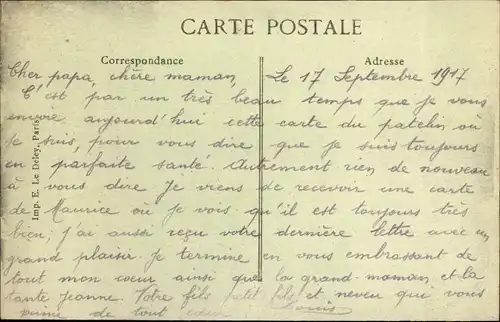 CARTE POSTALE
Correspondance
Adresse
Imp. E. Le Deley, Paris
Cher papa, chère maman, Le 17 Septembre 1917
C'est par un très beau temps que je vous
envoie aujourd'hui cette carte du patelin où
je suis, pour vous dire que je suis toujours
en parfaite santé. Autrement rien de nouveau
à vous dire je viens de recevoir une carte
de Maurice où je vois qu'il est toujours très
bien; j'ai aussi reçu votre dernière lettre avec un
grand plaisir. Je termine en vous embrassant de
tout mon cœur ainsi que la grand-maman et la
tante Jeanne. Votre fils petit fils et neveu qui vous
aime de tout cœur Louis